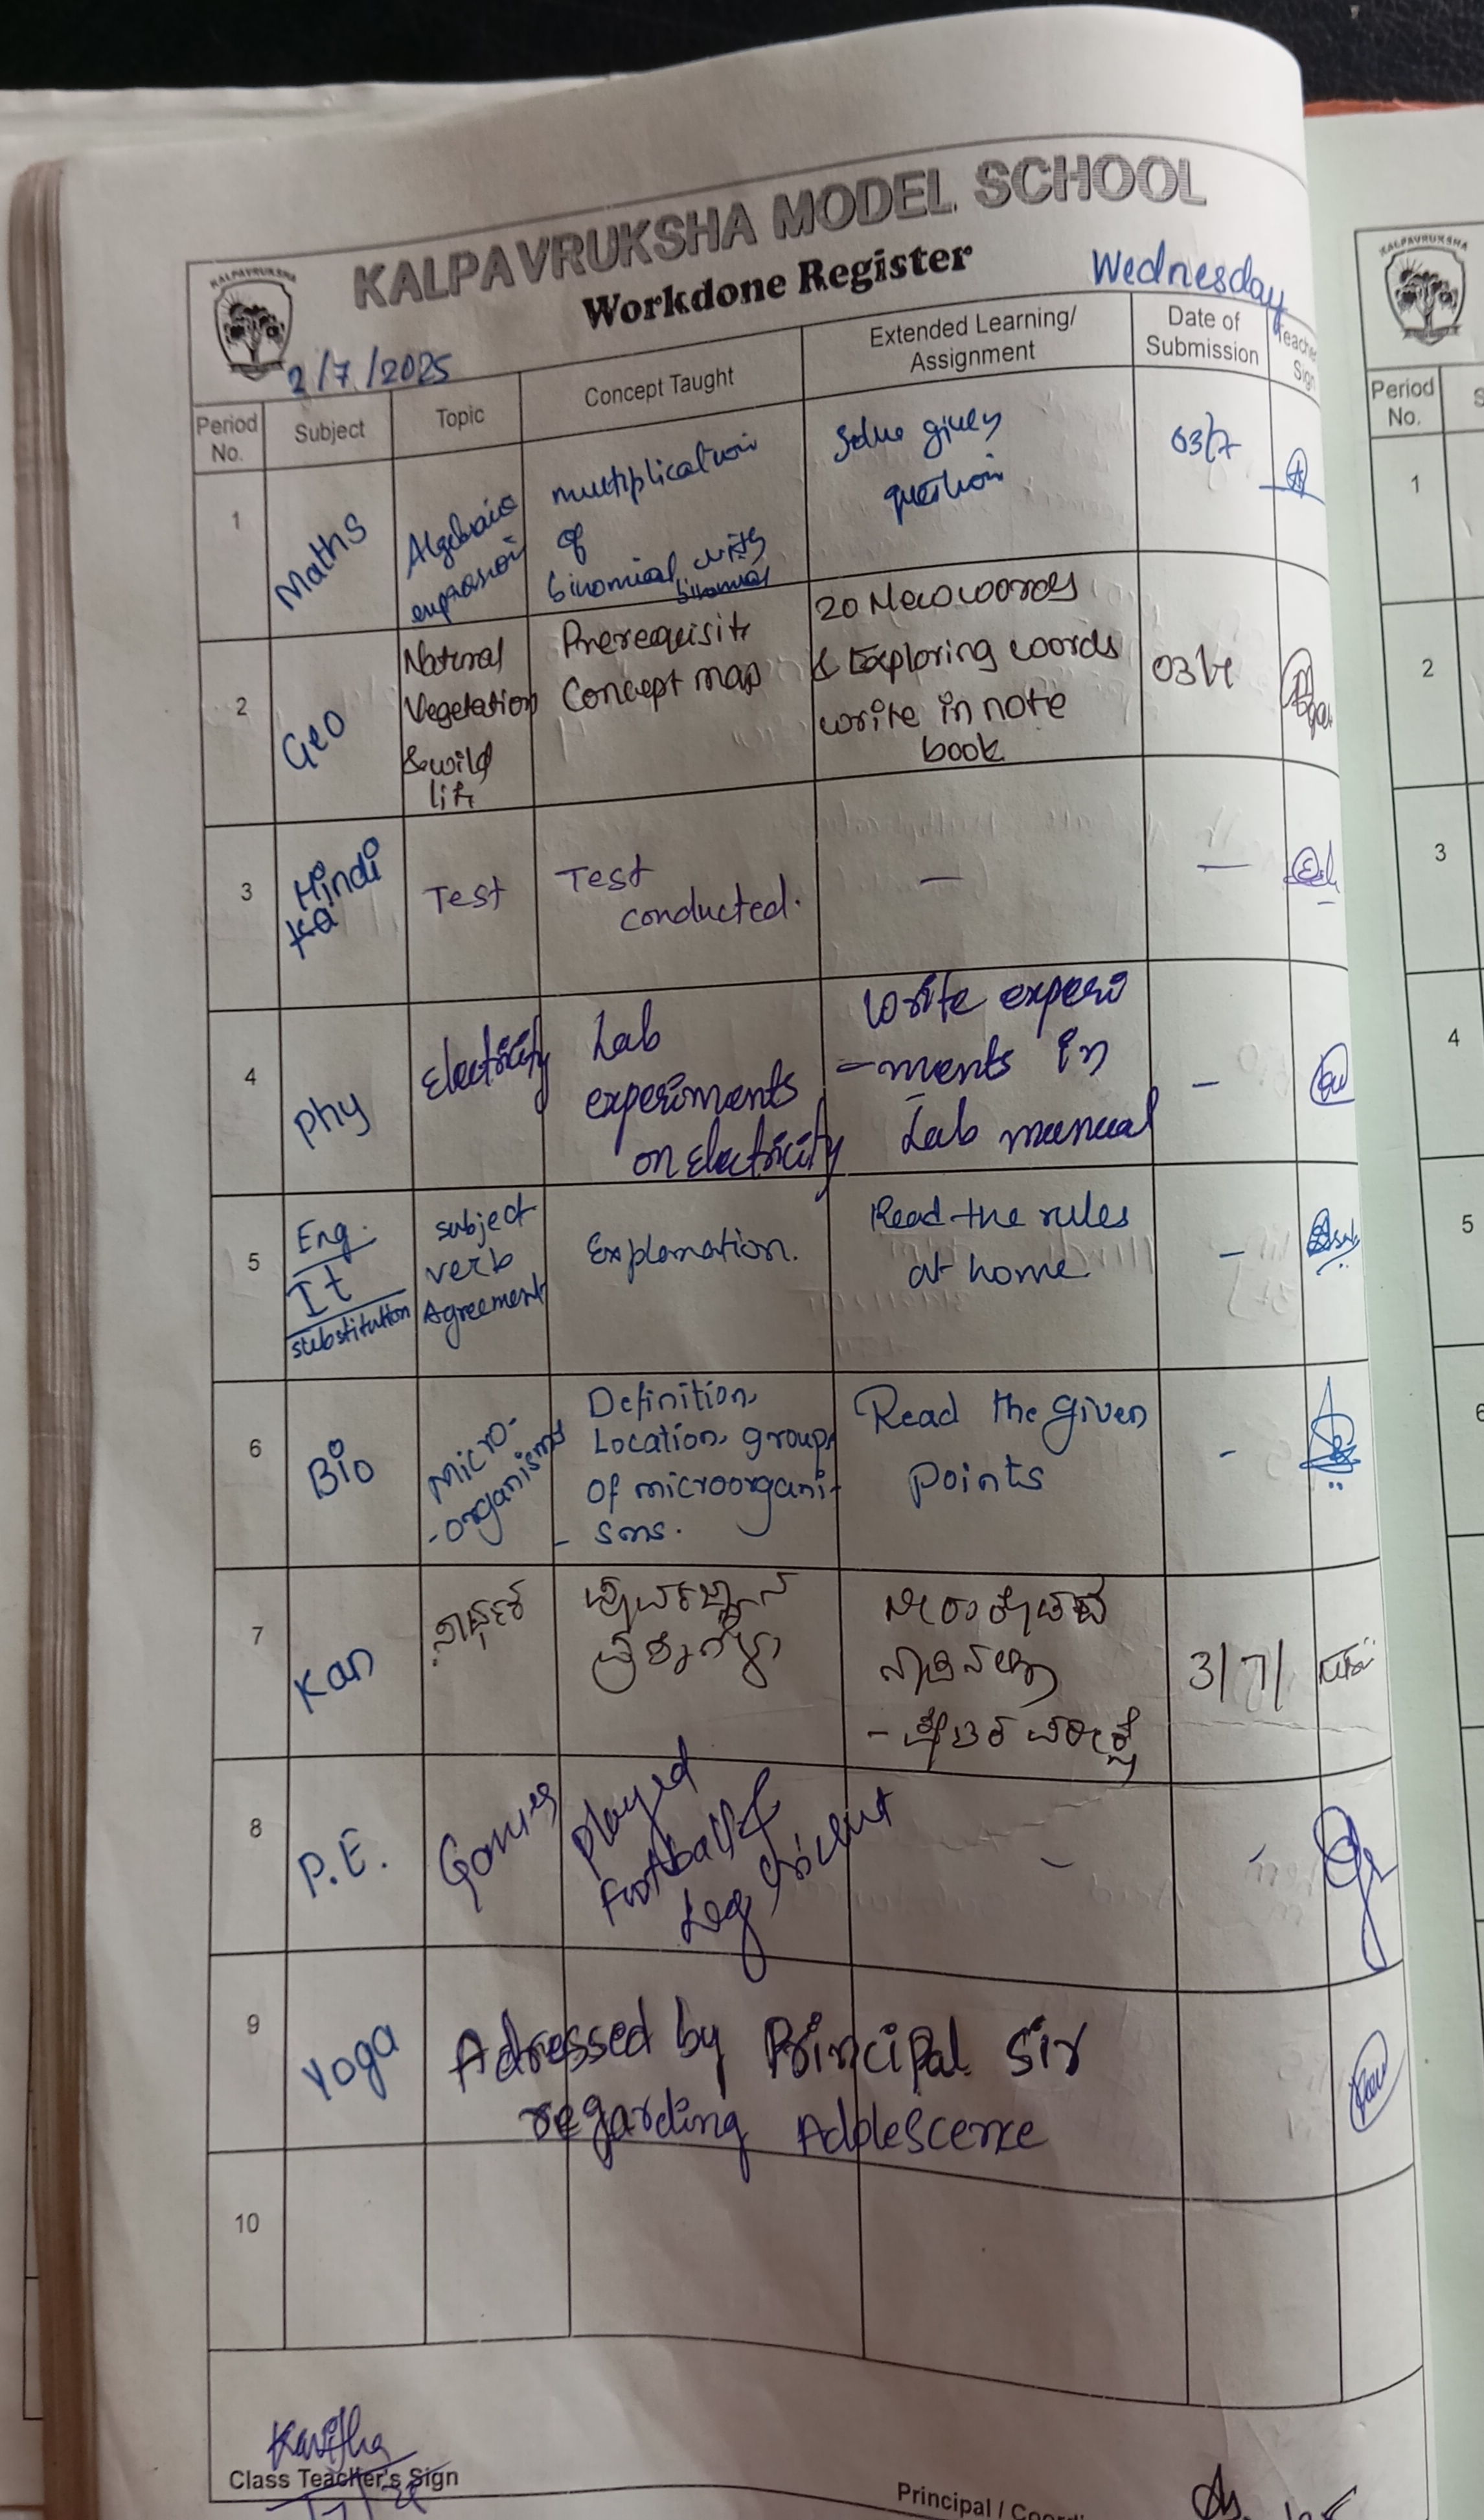 KALPAVRUKSHA MODEL SCHOOL
KALPAVRUKSHA
Workdone Register
Wednesday
2/7/2025
Period No.
Subject
Topic
Concept Taught
Extended Learning/ Assignment
Date of Submission
Teacher Sign
1
Maths
Algebraic
multiplication
of
binomial with
binomial
Solve given
question
03/7
2
Geo
Natural
Vegetation
& wild
life
Prerequisite
Concept map
20 New words
& Exploring words
write in note
book
3
Hindi
Ka
Test
Test
conducted.
—
—
4
Phy
Electricity
Lab
experiments
on Electricity
Write experi
-ments in
Lab manual
–
5
Eng.
It
substitution
subject
verb
Agreement
Explanation.
Read the rules
at home
–
6
Bio
Micro-
-organisms
Definition,
Location, groups
Of microorgani-
- sms.
Read the given
points
-
7
Kan
3/7/
8
P.E.
Games
Played
Football &
Leg cricket
–
–
9
Yoga
Adressed by Principal Sir
regarding Adolescence
10
Kavitha
Class Teacher's Sign
Principal /
KALPAVRUKSHA
Period
No.
S
1
2
3
4
5
6